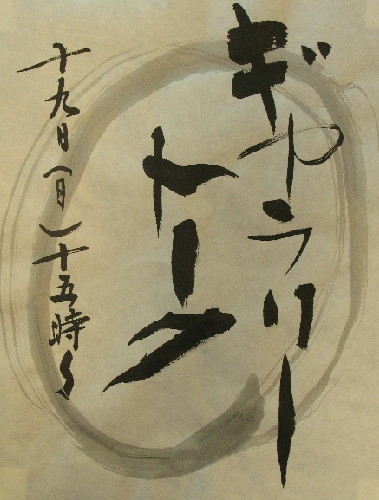 ギャラリー
トーク
十九日(日)十五時〜